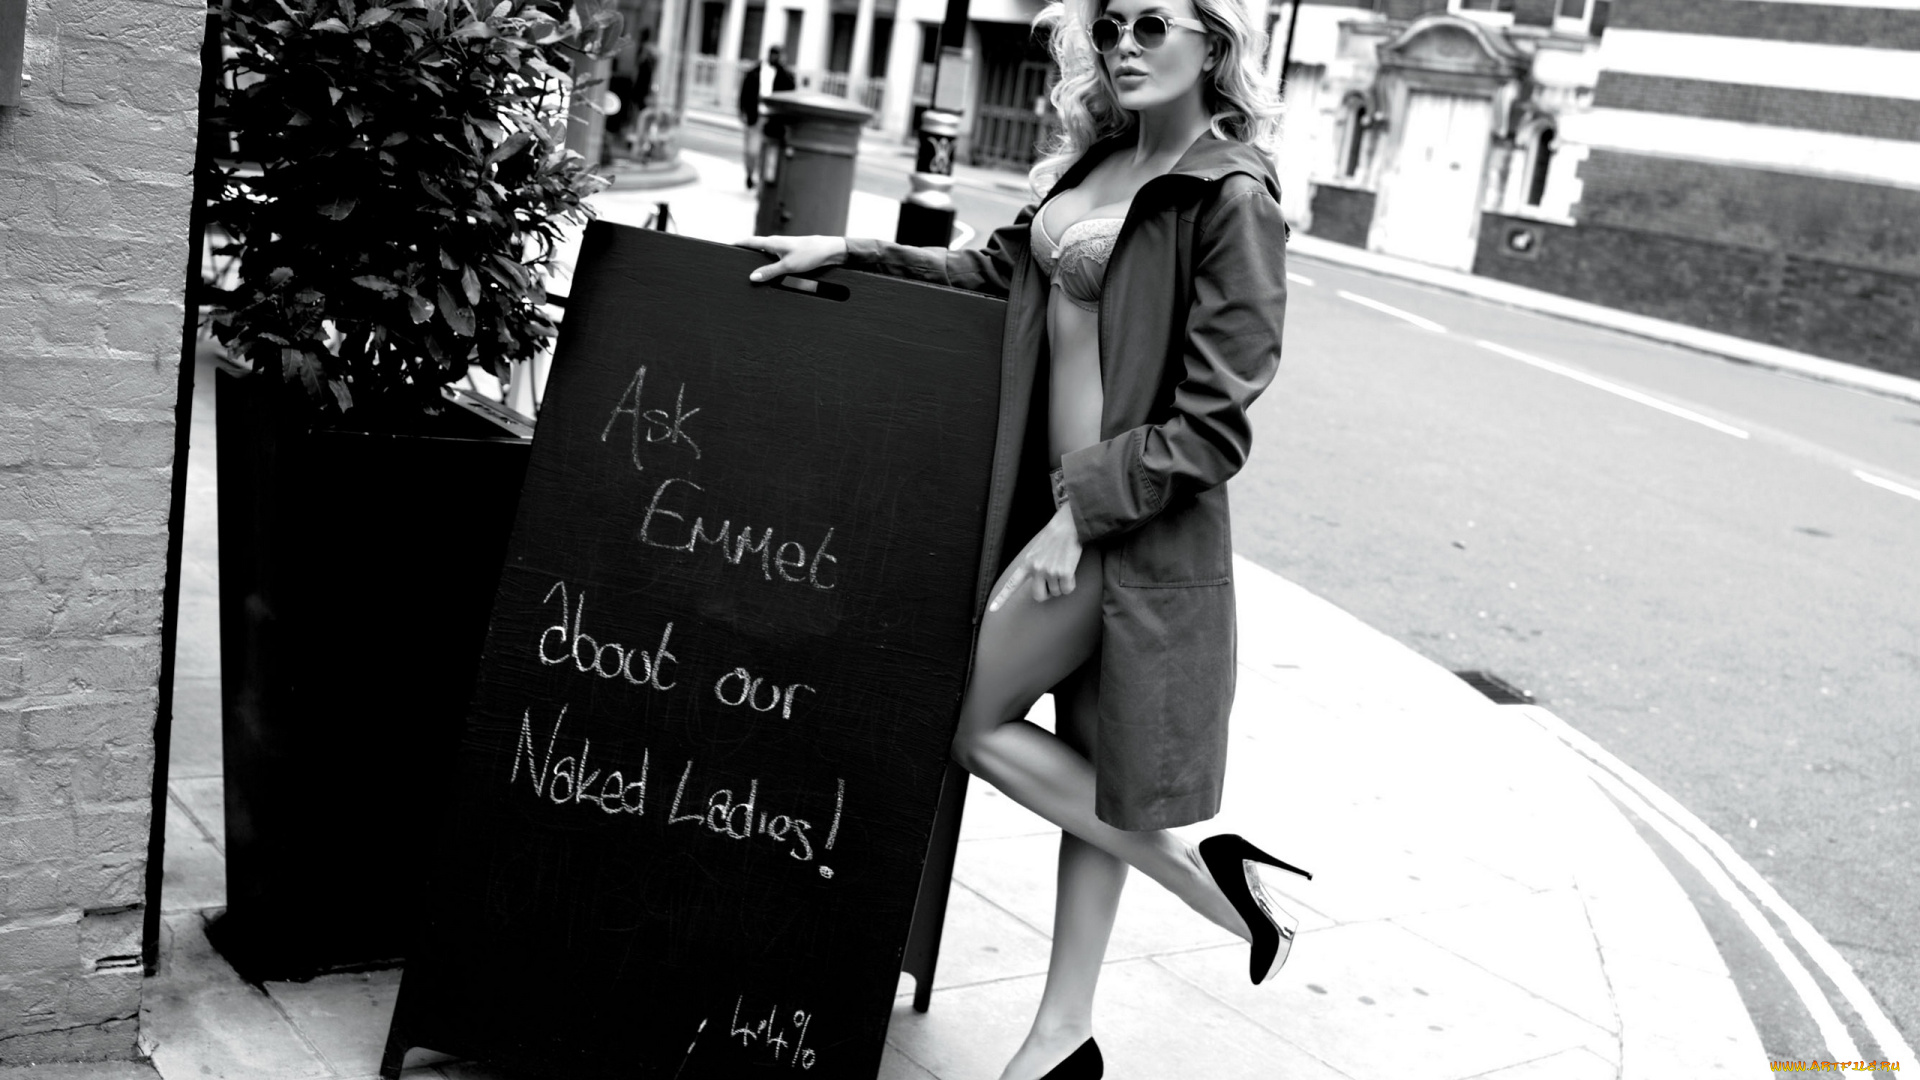 Ask
Emmet
about our
Naked Ladies!
4.4%
www.ARTFILE.RU